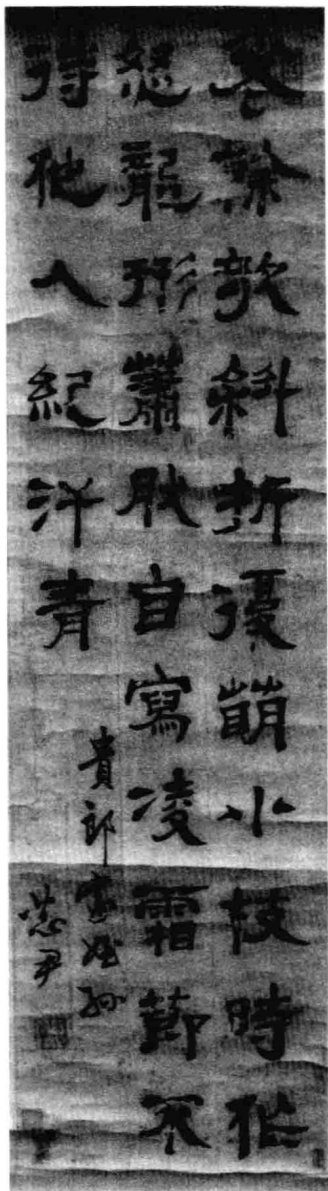 老榦欹斜折復萌小枝時作
怒龍形蕭肰自寫凌霜節不
待他人紀汗青
貴
尹